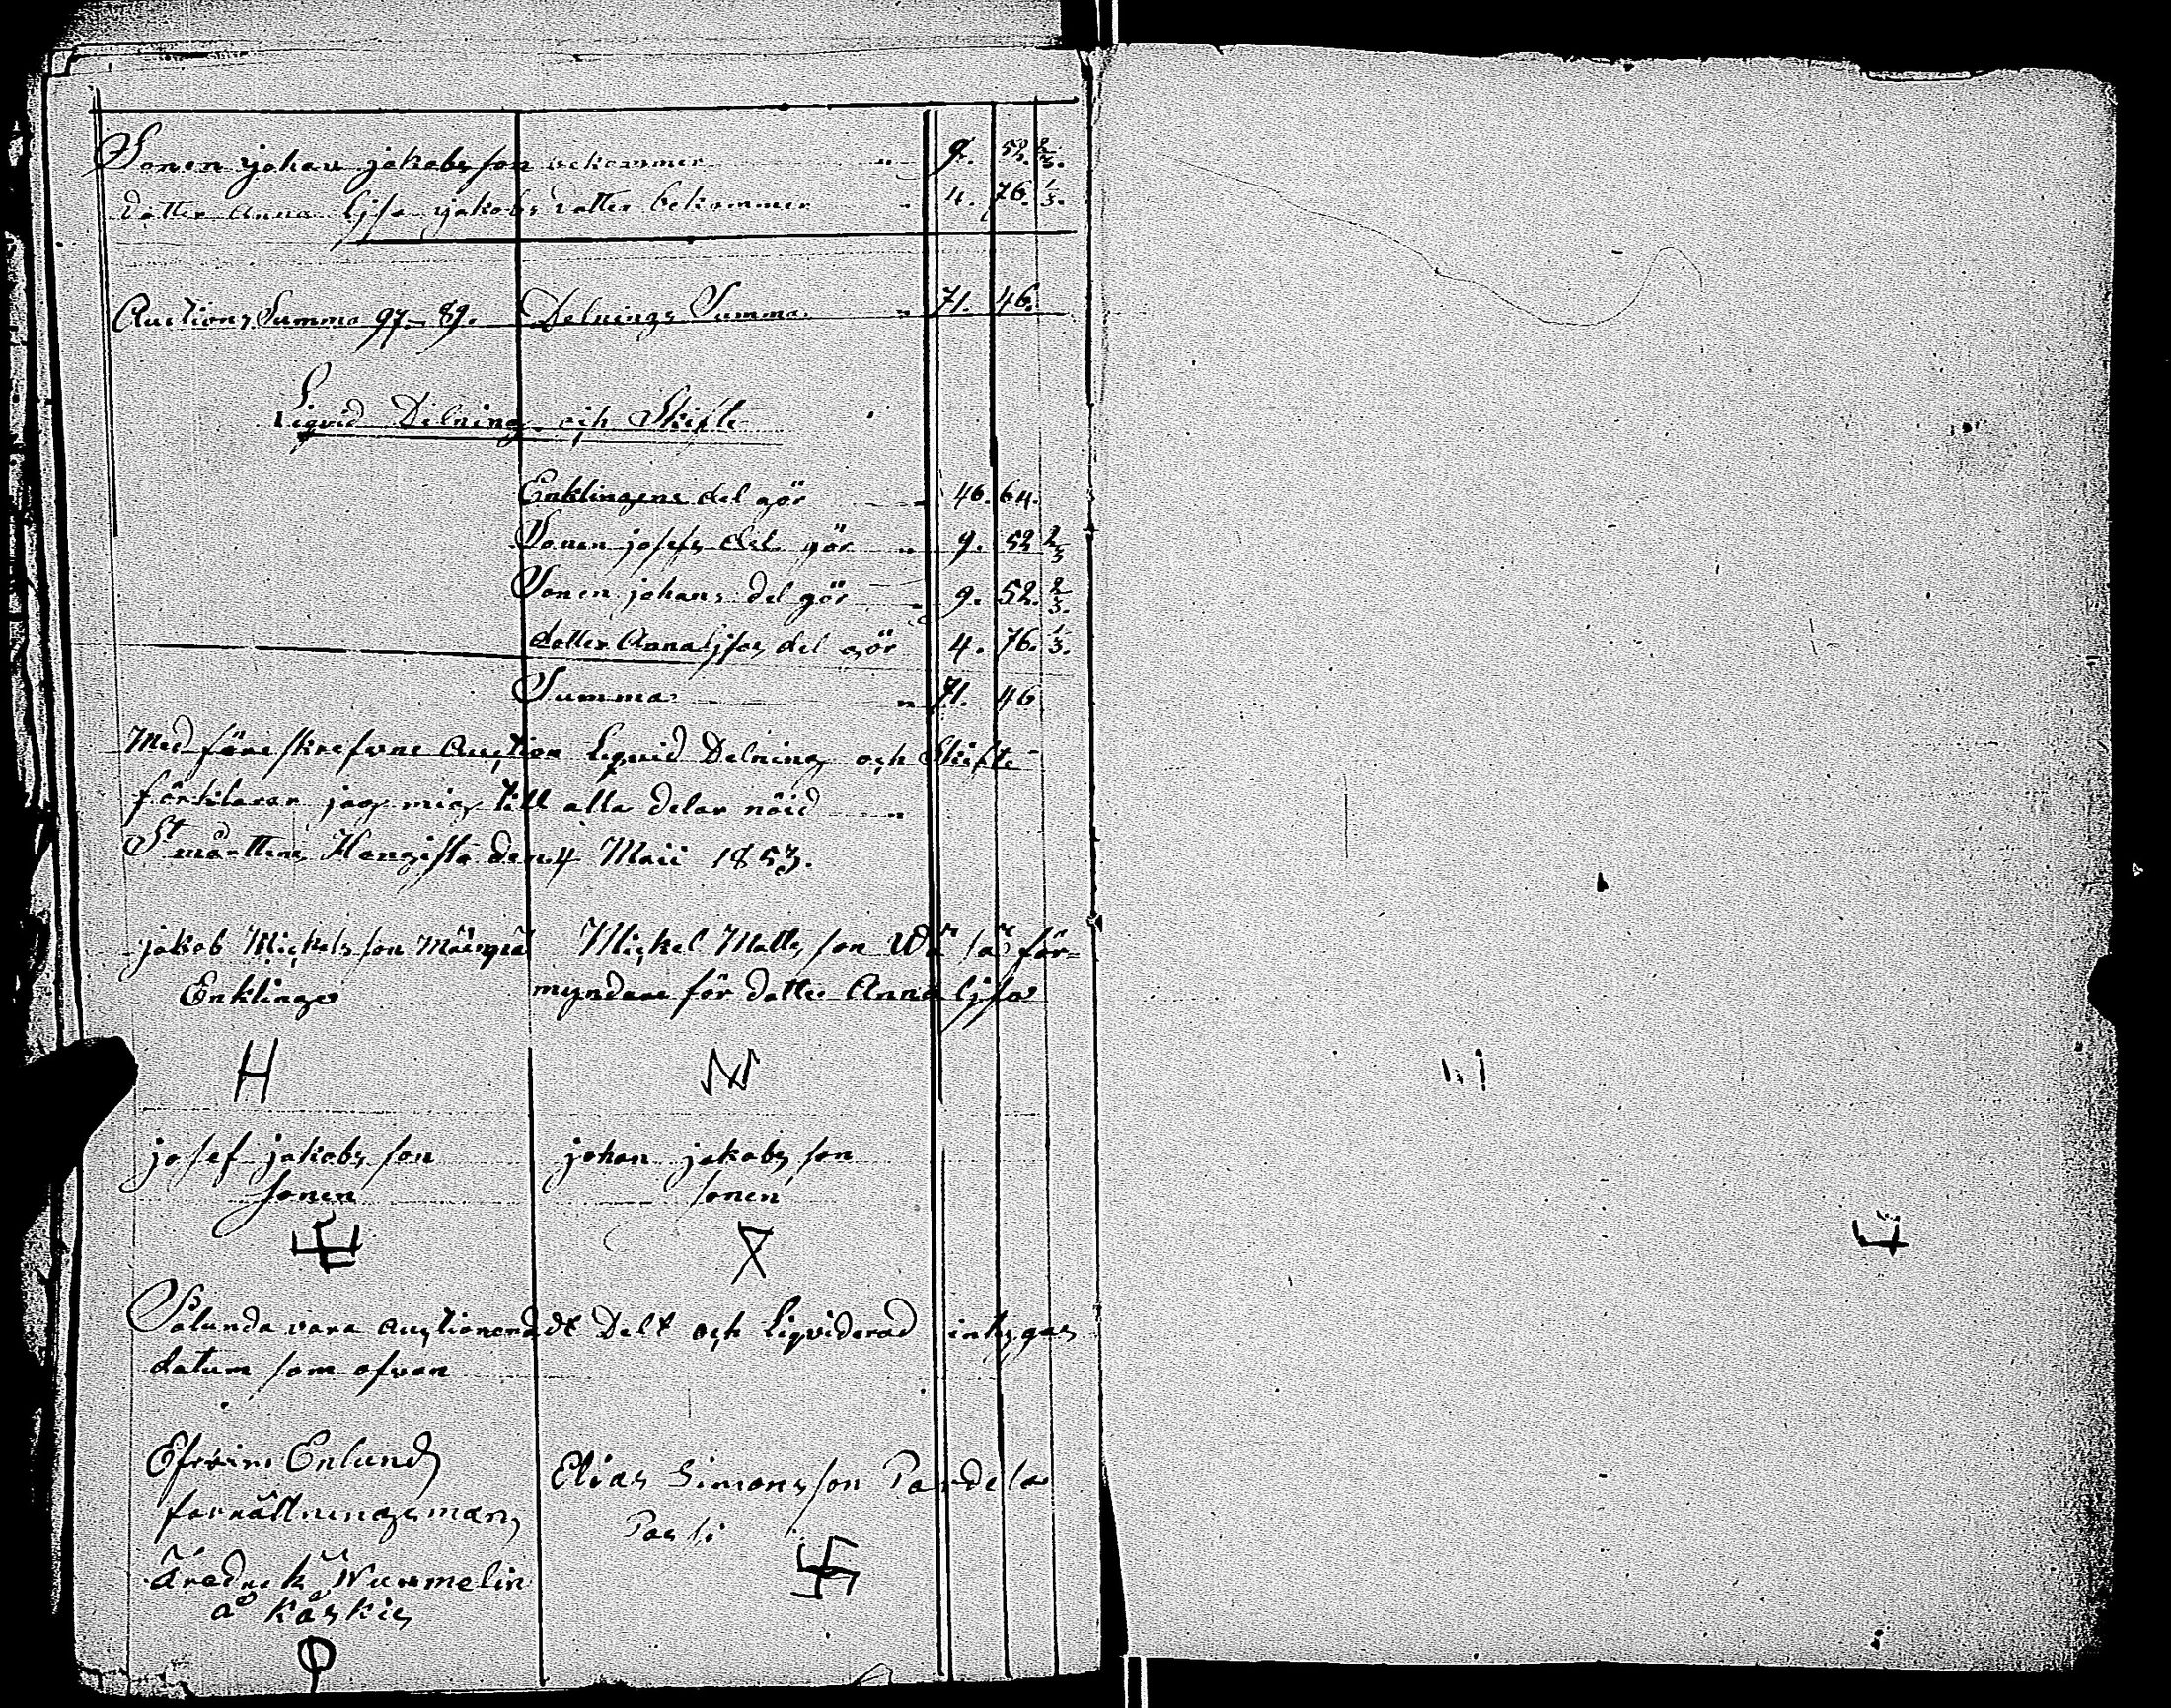 Sonen johan jakobs son bekommer " 9. 52. 2/3.
dotter Anna Ljsa jakobs dotter bekommer " 4. 76. 1/3.
Auctions Summa 97 - 89. Delnings Summa " 71. 46.
Liqvid Delning och Skifte
Enklingens del gör " 46. 64.
Sonen josefs del gör " 9. 52 2/3
Sonen johans del gör " 9. 52. 2/3.
dotter Anna Ljsas del gör 4. 76. 1/3.
Summa " 71. 46
Med föreskrefvne Auction Liqvid Delning och Skifte
förklarar jag mig till alla delar nöid
St mårttens Hongisto den 4 Maii 1853.
jakob Mickels son
Enkling
Mickel Matts son för=
myndare för dotter Anna Ljsa
H
josef jakobs son
sonen
johan jakobs son
sonen
Sålunda vara auctioneradt Delt och Liqviderad intygas
datum som ofvan
Efraim Enlund
förrättningsman
Elias Simons son Pandela
Fredrek Nummelin
å Kaskis